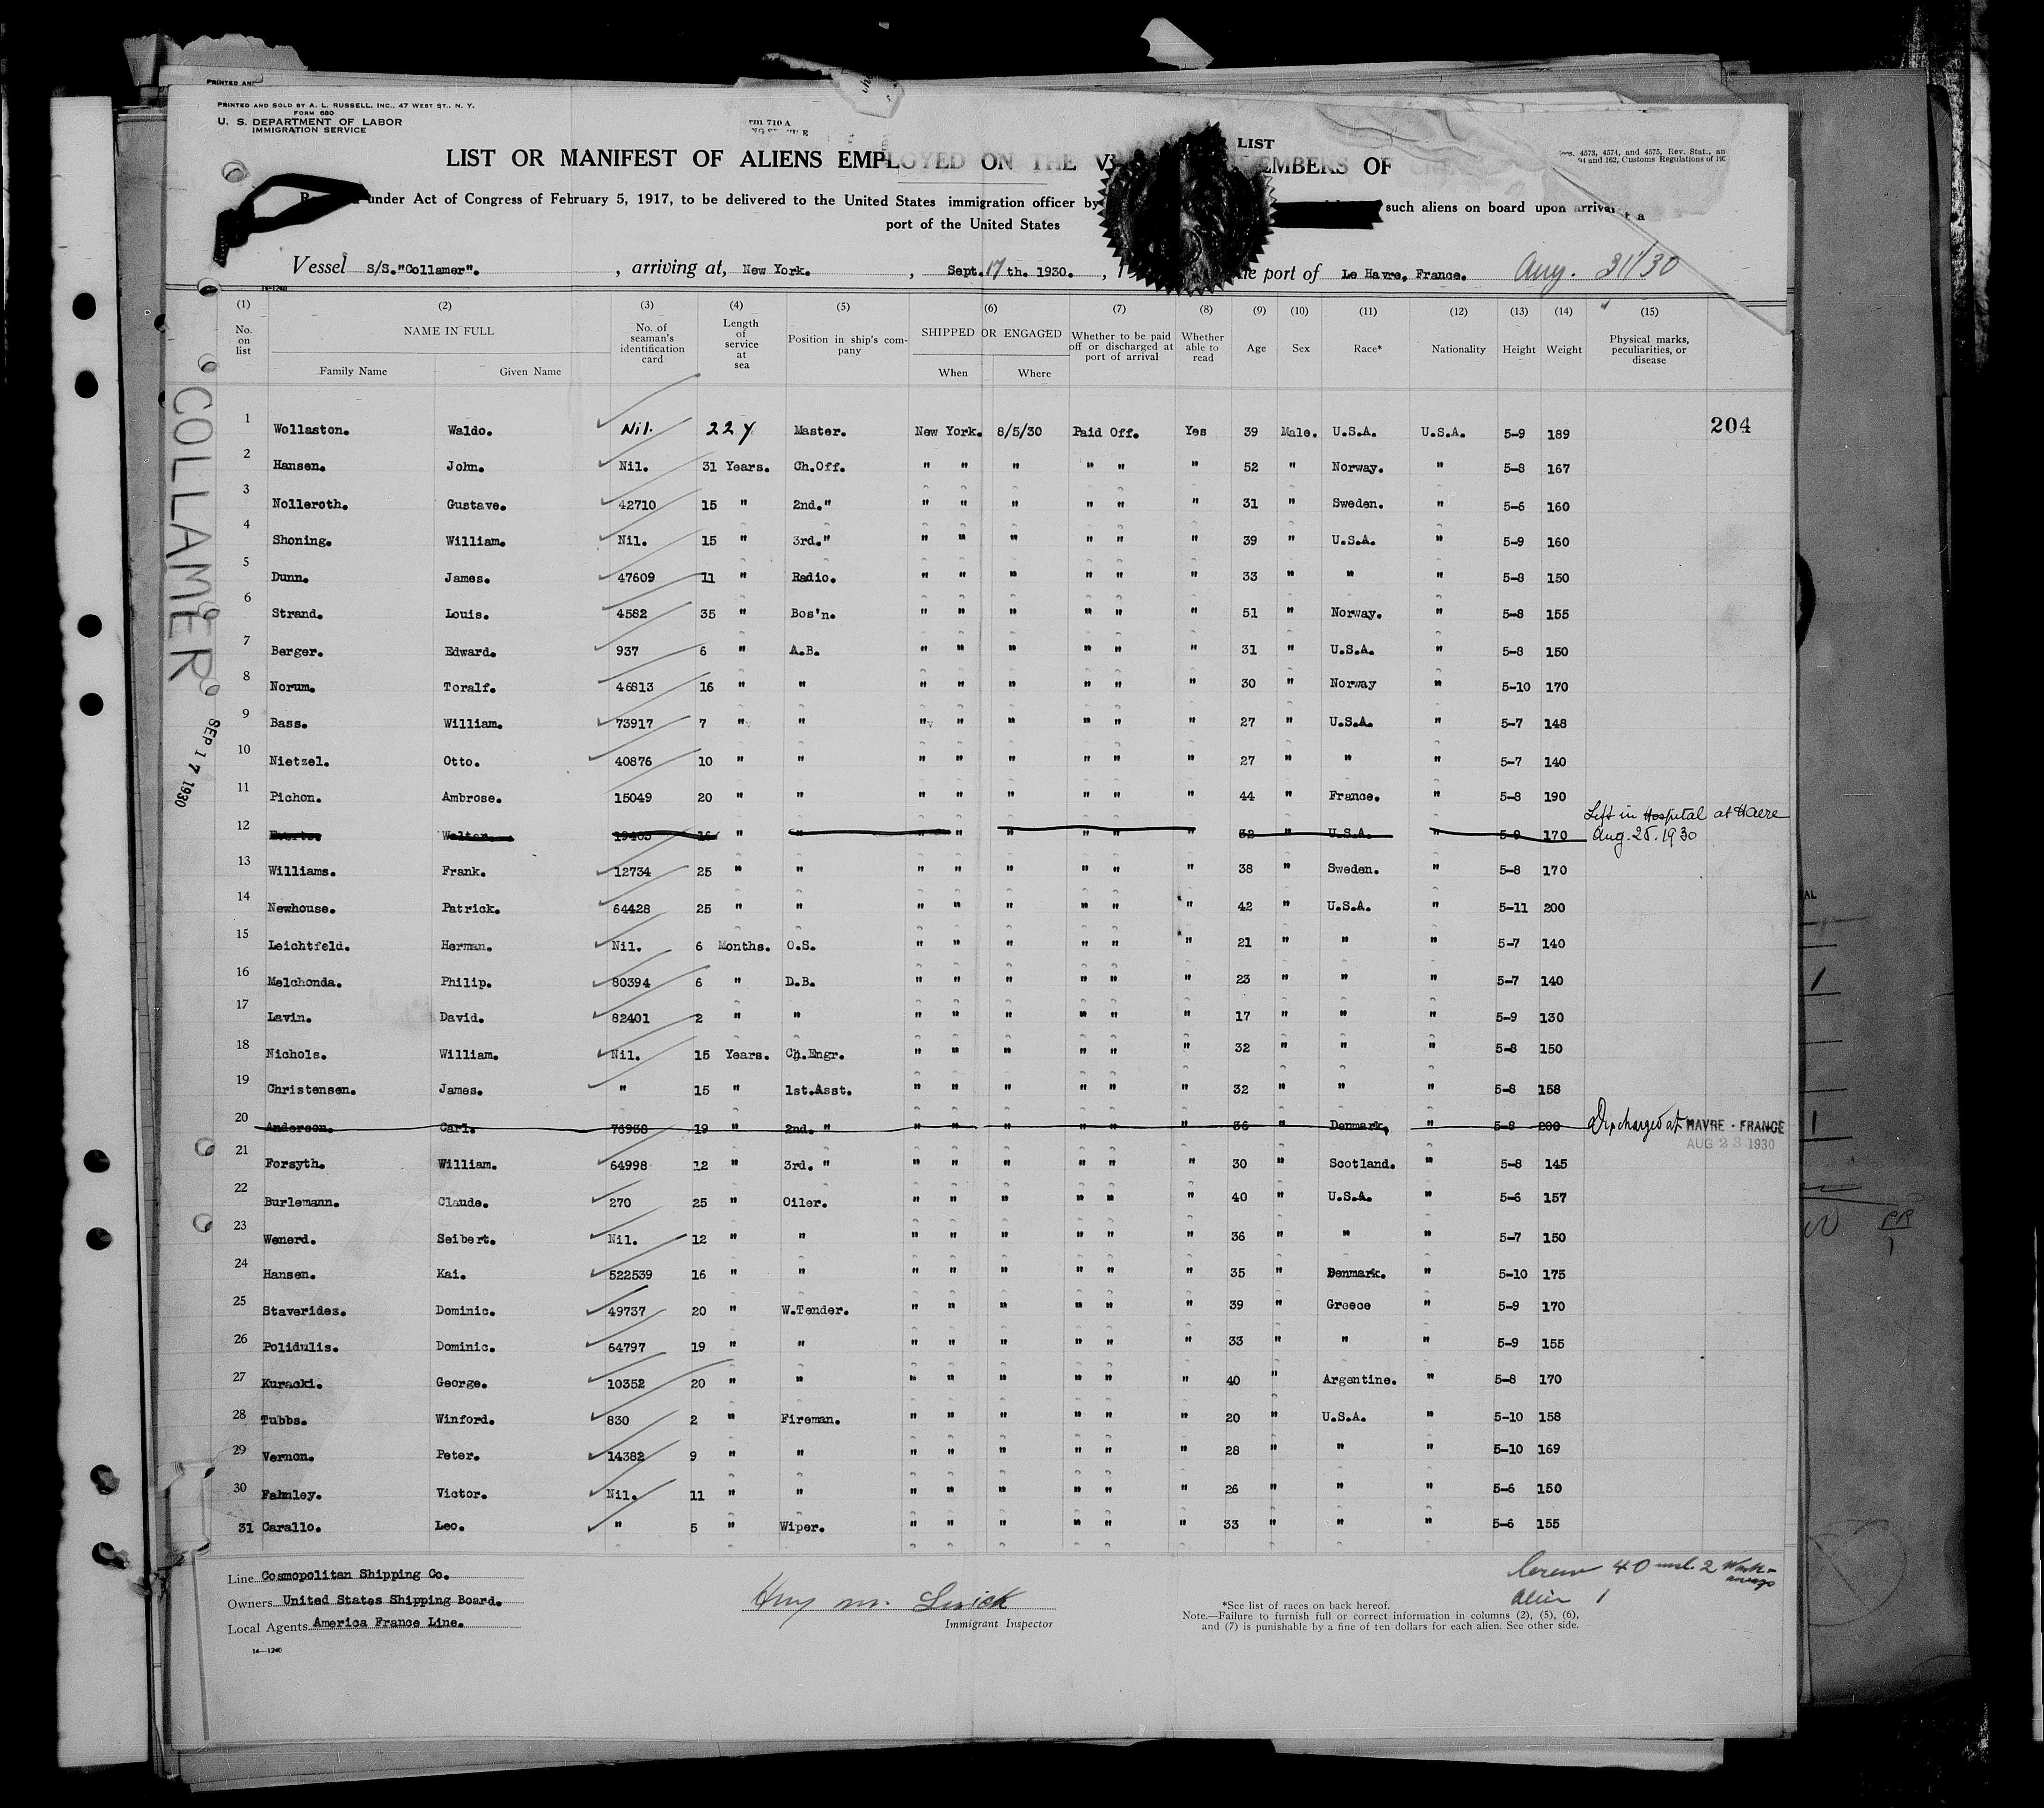 PRINTED AND
PRINTED AND SOLD BY A. L. RUSSELL, INC., 47 WEST ST., N. Y.
FORM 680
U. S. DEPARTMENT OF LABOR
IMMIGRATION SERVICE
710 A
LIST
LIST OR MANIFEST OF ALIENS EMPLOYED ON THE MEMBERS OF
4573, 4574, and 4575, Rev. Stat., an
94 and 162, Customs Regulations of 19
under Act of Congress of February 5, 1917, to be delivered to the United States immigration officer by such aliens on board upon arrival a
port of the United States
Vessel S/S."Collamer". , arriving at, New York. , Sept. 17 th. 1930. , the port of Le Havre, France. Aug. 31/30
14-1240
(1) (2) (3) (4) (5) (6) (7) (8) (9) (10) (11) (12) (13) (14) (15)
No. on list NAME IN FULL Family Name Given Name No. of seaman's identification card Length of service at sea Position in ship's company SHIPPED OR ENGAGED When Where Whether to be paid off or discharged at port of arrival Whether able to read Age Sex Race* Nationality Height Weight Physical marks, peculiarities, or disease
COLLAMER
SEP 17 1930
204
1 Wollaston. Waldo. Nil. 22 y Master. New York. 8/5/30 Paid Off. Yes 39 Male. U.S.A. U.S.A. 5-9 189
2 Hansen. John. Nil. 31 Years. Ch.Off. " " " " " " 52 " Norway. " 5-8 167
3 Nolleroth. Gustave. 42710 15 " 2nd." " " " " " " 31 " Sweden. " 5-6 160
4 Shoning. William. Nil. 15 " 3rd." " " " " " " 39 " U.S.A. " 5-9 160
5 Dunn. James. 47609 11 " Radio. " " " " " " 33 " " " 5-8 150
6 Strand. Louis. 4582 35 " Bos'n. " " " " " " 51 " Norway. " 5-8 155
7 Berger. Edward. 937 6 " A.B. " " " " " " 31 " U.S.A. " 5-8 150
8 Norum. Toralf. 46813 16 " " " " " " " " 30 " Norway " 5-10 170
9 Bass. William. 73917 7 " " " " " " " " 27 " U.S.A. " 5-7 148
10 Nietzel. Otto. 40876 10 " " " " " " " " 27 " " " 5-7 140
11 Pichon. Ambrose. 15049 20 " " " " " " " " 44 " France. " 5-8 190
12 Walter. 19403 16 " " " " " " " " 32 " U.S.A. " 5-9 170 Left in Hospital at Havre Aug. 25. 1930
13 Williams. Frank. 12734 25 " " " " " " " " 38 " Sweden. " 5-8 170
14 Newhouse. Patrick. 64428 25 " " " " " " " " 42 " U.S.A. " 5-11 200
15 Leichtfeld. Herman. Nil. 6 Months. O.S. " " " " " " 21 " " " 5-7 140
16 Melchonda. Philip. 80394 6 " D.B. " " " " " " 23 " " " 5-7 140
17 Lavin. David. 82401 2 " " " " " " " " 17 " " " 5-9 130
18 Nichols. William. Nil. 15 Years. Ch.Engr. " " " " " " 32 " " " 5-8 150
19 Christensen. James. " 15 " 1st.Asst. " " " " " " 32 " " " 5-8 158
20 Anderson. Carl. 76938 19 " 2nd. " " " " " " " 36 " Denmark. " 5-8 200 Discharged at HAVRE - FRANCE
AUG 23 1930
21 Forsyth. William. 64998 12 " 3rd. " " " " " " " 30 " Scotland. " 5-8 145
22 Burlemann. Claude. 270 25 " Oiler. " " " " " " 40 " U.S.A. " 5-6 157
23 Wenerd. Seibert. Nil. 12 " " " " " " " " 36 " " " 5-7 150
24 Hansen. Kai. 522539 16 " " " " " " " " 35 " Denmark. " 5-10 175
25 Staverides. Dominic. 49737 20 " W.Tender. " " " " " " 39 " Greece " 5-9 170
26 Polidulis. Dominic. 64797 19 " " " " " " " " 33 " " " 5-9 155
27 Kuracki. George. 10352 20 " " " " " " " " 40 " Argentine. " 5-8 170
28 Tubbs. Winford. 830 2 " Fireman. " " " " " " 20 " U.S.A. " 5-10 158
29 Vernon. Peter. 14382 9 " " " " " " " " 28 " " " 5-10 169
30 Fahnley. Victor. Nil. 11 " " " " " " " " 26 " " " 5-6 150
31 Carallo. Leo. " 5 " Wiper. " " " " " " 33 " " " 5-6 155
Line Cosmopolitan Shipping Co.
Owners United States Shipping Board.
Local Agents America France Line.
14-1240
Immigrant Inspector
*See list of races on back hereof.
Note.—Failure to furnish full or correct information in columns (2), (5), (6),
and (7) is punishable by a fine of ten dollars for each alien. See other side.
Crew 40 incl. 2 Workaways
Alien 1